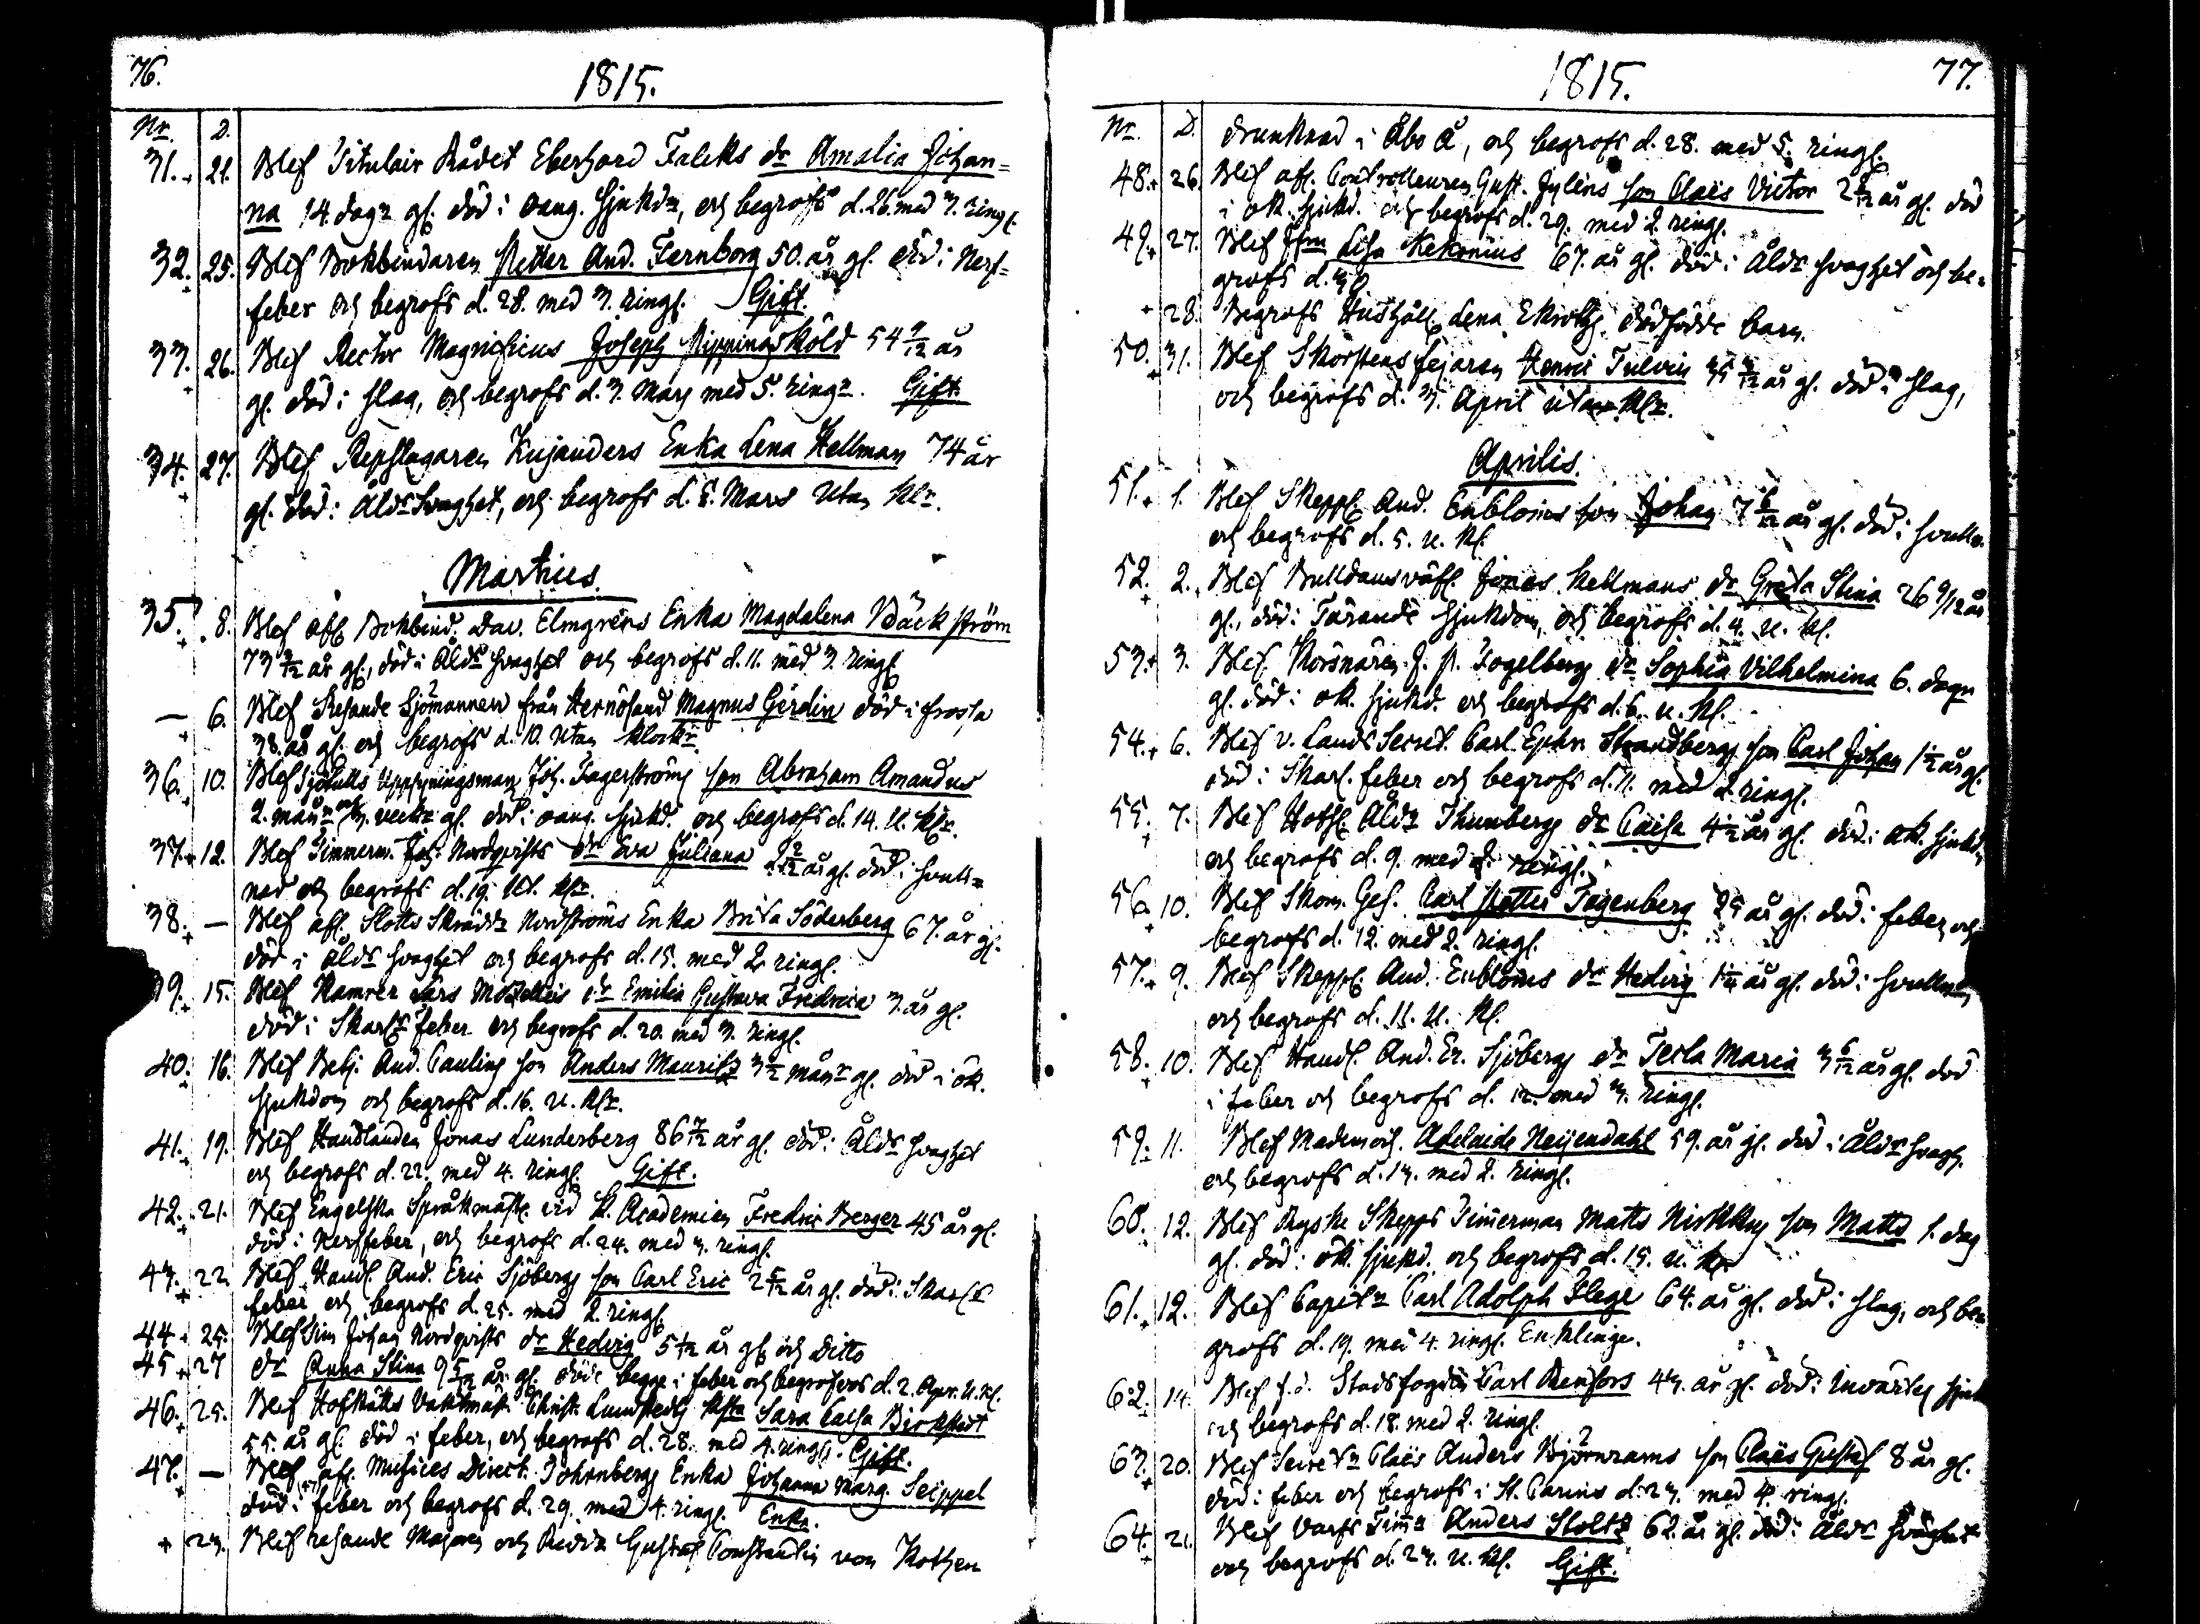 76.
1815.
Nr. D.
31. 21. Blef Titulair Rådet Eberhard Falcks dr Amalia Johan=
na 14 dagr gl. död i oang. sjukdm, och begrofs d. 26. med 3. ringr.
32. 25. Blef Bokbindaren Petter And. Fernborg 50. år gl. död i Nerf=
feber och begrofs d. 28. med 3. ringr. Gift.
33. 26. Blef Rector Magnificus Joseph Pippingsköld 54 år
gl. död i slag, och begrofs d. 3. Mars med 5. ringr. Gift.
34. 27. Blef Repslagaren Kujanders Enka Lena Hellman 74 år
gl. död i Åldr svaghet, och begrofs d. 5. Mars utan Klr.
Martius.
35. 8. Blef afl. Bokbind. Dav. Elmgrens Enka Magdalena Bäckström
73 år gl., död i Åldr svaghet och begrofs d. 11. med 3. ringr.
— 6. Blef Resande Sjömannen från Hernösand Magnus Gerdin död i frossa
38. år gl. och begrofs d. 10. utan klockr.
36. 10. Blef Sjötulls Uppsyningsman Joh. Fagerströms son Abraham Amandus
2. månr veckr gl. död i oang. sjukd. och begrofs d. 14. U. Klr.
37. 12. Blef Timmerm. Joh. Nordqvists dr Eva Juliana år gl. död i svull=
nad och begrofs d. 19. Ut. Klr.
38. — Blef afl. Slotts Skräddr Nordströms Enka Brita Söderberg 67. år gl.
död i Åldr svaghet och begrofs d. 15. med 2 ringr.
39. 15. Blef Kamrer Lars dr Emilia Gustava Fredrica 3. år gl.
död i Skarl. feber och begrofs d. 20. med 3. ringr.
40. 16. Blef Betj. And. Paulins son Anders Mauritz 3½ månr gl. död i ok.
sjukdom och begrofs d. 16. U. Klr.
41. 19. Blef Handlanden Jonas Lunderberg 86 år gl. död i Åldr svaghet
och begrofs d. 22. med 4. ringr. Gift.
42. 21. Blef Engelska Språkmäst. vid K. Academien Fredric Berger 45 år gl.
död i Nerffeber, och begrofs d. 24. med 3. ringr.
43. 22. Blef Handl. And. Eric Sjöbergs son Carl Eric 2 år gl. död i Skarl.
feber och begrofs d. 25. med 2. ringr.
44. 25. Blef Tim Johan Nordqvists dr Hedvig 5 år gl. och Ditto
45. 27 dr Anna Stina 9 år gl. döde begge i feber och begrofvos d. 2. Apr. U. Kl.
46. 25. Blef Hofrätts Vaktmäst. Christ. Lundstedts Hstr Sara Caisa Björkstedt
55. år gl. död i feber, och begrofs d. 28. med 4. ringr. Gift.
47. — Blef afl. Musices Direct. Fohrnbergs Enka Johanna Marg. Seippel
död i feber och begrofs d. 29. med 4. ringr. Enka.
+ 23. Blef resande Majoren och Riddr Gustaf Constantin von Kothen
1815.
77.
Nr. D.
drunknad i Åbo Å, och begrofs d. 28. med 5. ringr.
48. 26. Blef afl. Controlleuren Gust. Gyléns son Claës Victor 2 år gl. död
i ok. sjukd. och begrofs d. 29. med 2. ringr.
49. 27. Blef Lisa Kekonius 67. år gl. död i Åldr svaghet och be=
grofs d.
+ 28. Begrofs Hushåll. Lena Ekroths dödfödde barn
50. 31. Blef Skorstensfejaren Henric Tulvin 35 år gl. död i slag,
och begrofs d. 3. April utan Klr.
Aprilis.
51. 1. Blef Skepp. And. Enbloms son Johan 7 år gl. död i svulln.
och begrofs d. 5. u. Kl.
52. 2. Blef Bulldansväfv. Jonas Hellmans dr Greta Stina 26 9/12 år
gl., död i Tärande sjukdom, och begrofs d. 4. U. Kl.
53. 3. Blef Körsnären J. P. Fogelbergs dr Sophia Vilhelmina 6. dagr
gl. död i ok. sjukd. och begrofs d. 6. u. Kl.
54. 6. Blef v. Lands Secret. Carl Ephr. Strandbergs son Carl Johan 1½ år gl.
död i Skarl. feber och begrofs d. 11. med 2. ringr.
55. 7. Blef Hofsl. Åldr Thunbergs dr Caisa 4 år gl. död i ok. sjukd.
och begrofs d. 9. med ringr.
56. 10. Blef Skom. Ges. Carl Petter Fagenberg 25 år gl. död i feber och
begrofs d. 12. med 2. ringr.
57. 9. Blef Skepp. And. Enbloms dr Hedvig år gl. död i svulln
och begrofs d. 11. U. Kl.
58. 10. Blef Handl. And. Er. Sjöbergs dr Tecla Maria 3 6/12 år gl. död
i feber och begrofs d. 12. med 3. ringr.
59. 11. Blef Mademois. Adelaide Neijendahl 59. år gl. död i Åldr svagh.
och begrofs d. 13. med 2. ringr.
60. 12. Blef Ryske Skepps Timmerman Matts son Matts 1. dag
gl. död i ok. sjukd. och begrofs d. 15. u. Kl.
61. 12. Blef Capit. Carl Adolph Flege 64. år gl. död i slag, och be=
grofs d. 19. med 4. ringr. Enklinge.
62. 14. Blef f. d. Stadsfogden Carl Renfors 43. år gl. död i invärtes sjuk
och begrofs d. 18. med 2. ringr.
63. 20. Blef Secret. Claës Anders Björnrams son Claës Gustaf 8 år gl.
död i feber och begrofs i St. Carins d. 23. med 4. ringr.
64. 21. Blef Varfs Timr Anders Stoltz 62. år gl. död i Åldr svaghet
och begrofs d. 23. u. Kl. Gift.